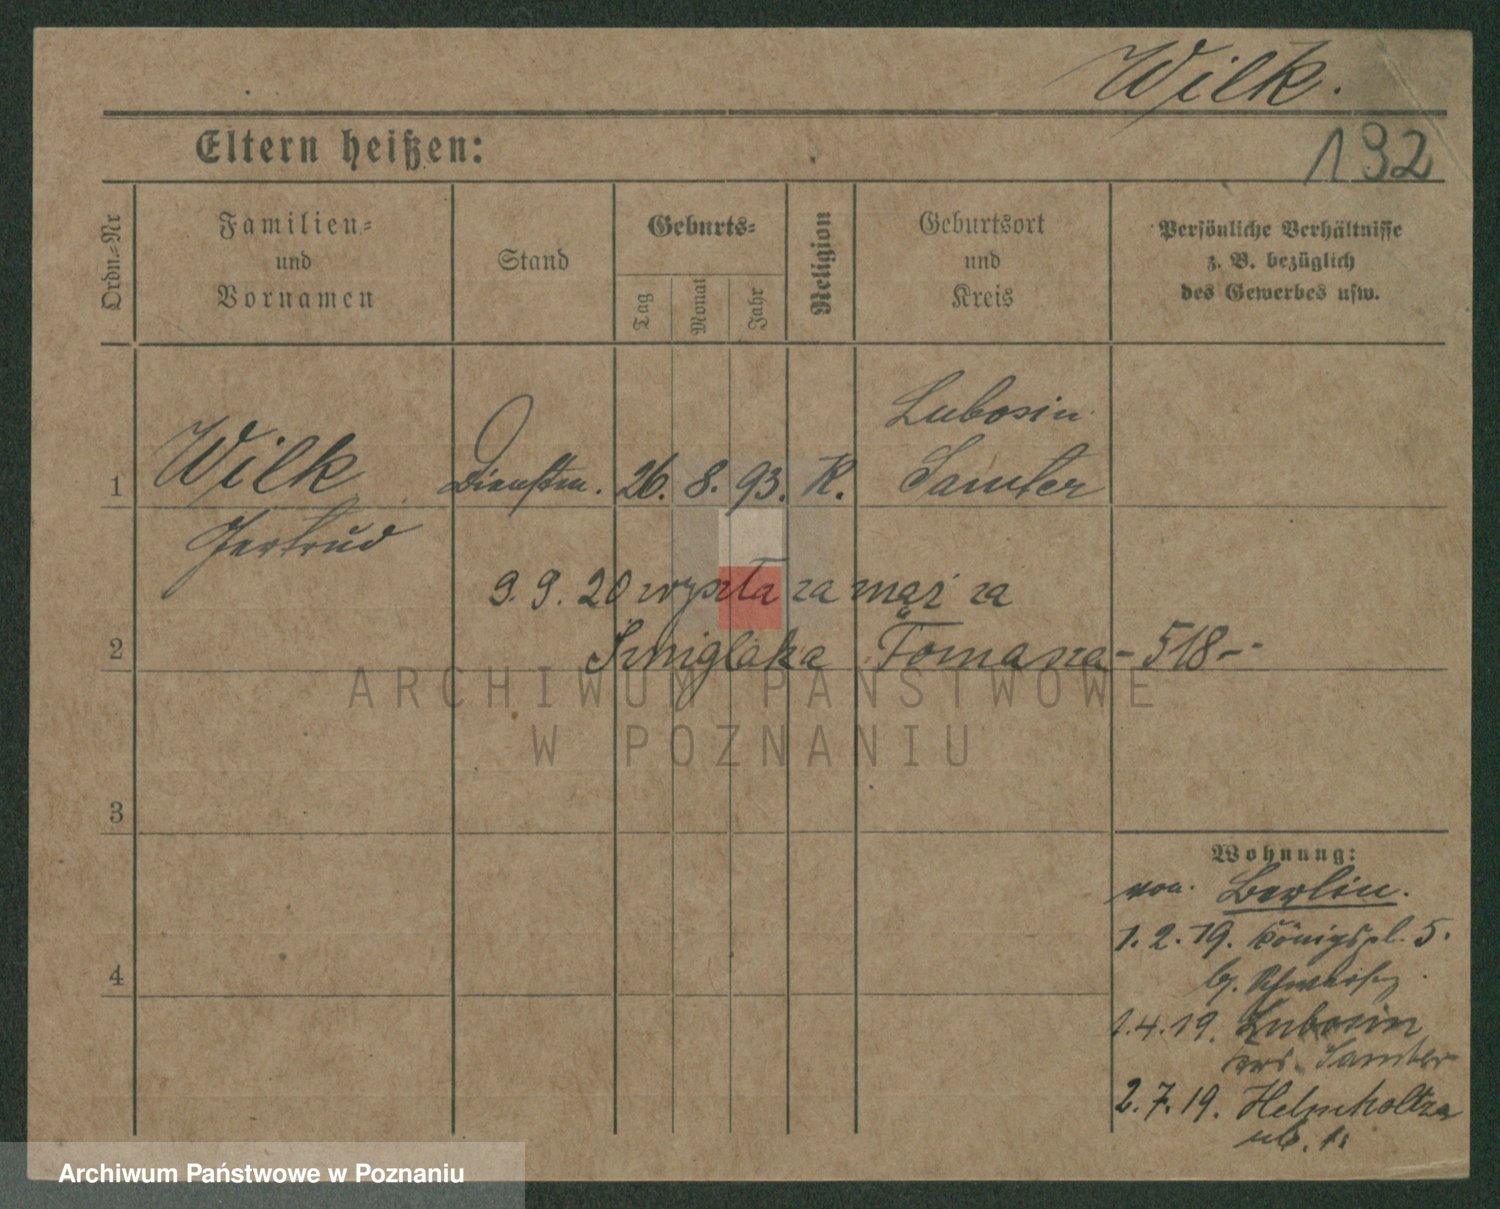 Wilk.
192
Eltern heißen:
Ordn.-Nr
Familien-
und
Vornamen
Stand
Geburts-
Tag
Monat
Jahr
Religion
Geburtsort
und
Kreis
Persönliche Verhältnisse
z. B. bezüglich
des Gewerbes usw.
1
Wilk
Gertrud
Dienstm.
26. 8. 93.
K.
Lubosin
Samter
9. 9. 20 wyszła za mąż za
Śmiglaka Tomasza - 518 -
2
3
4
Wohnung:
von Berlin.
1. 2. 19. Königspl. 5.
b.
1. 4. 19. Lubosin
Krs. Samter
2. 7. 19. Helmholtza
ul. 1.
ARCHIWUM PAŃSTWOWE
W POZNANIU
Archiwum Państwowe w Poznaniu